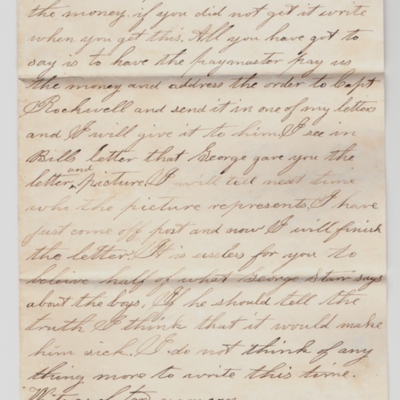 the money, if you did not get it write
when you get this. All you have got to
say is to have the paymaster pay us
the money and address the order to Capt
Rockwell and send it in one of my letters
and I will give it to him. I see in
Bills letter that George gave you the
letter and picture. I will tell next time
who the picture represents. I have
just come off post and now I will finish
the letter. It is useless for you to
beleive half of what George Starr says
about the boys. If he should tell the
truth I think that it would make
him sick. I do not think of any
thing more to write this time.